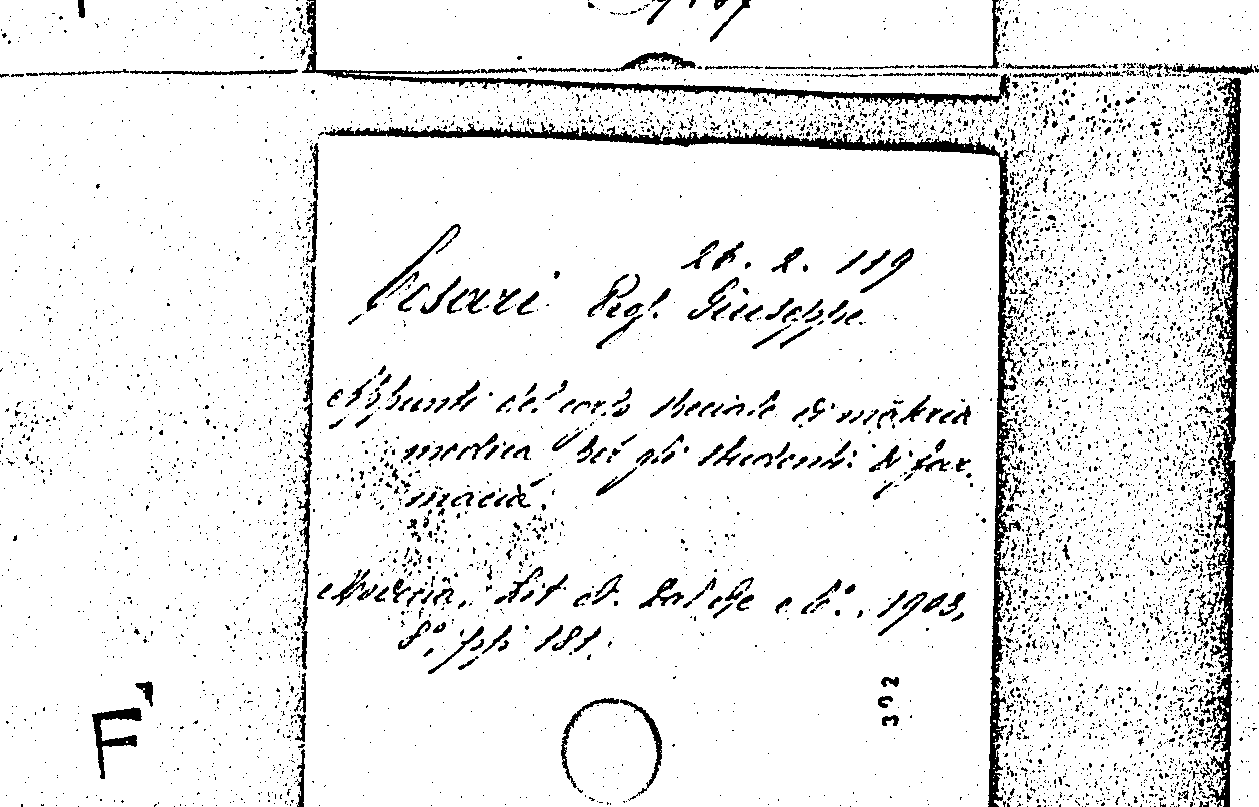 26. 2. 119
Cesari Giuseppe
Appunti del corso speciale di materia
medica per gli studenti di far-
macia.
Modena, Lit. A. Dal Re e C.°, 1903,
8°, pp 181.
392
F